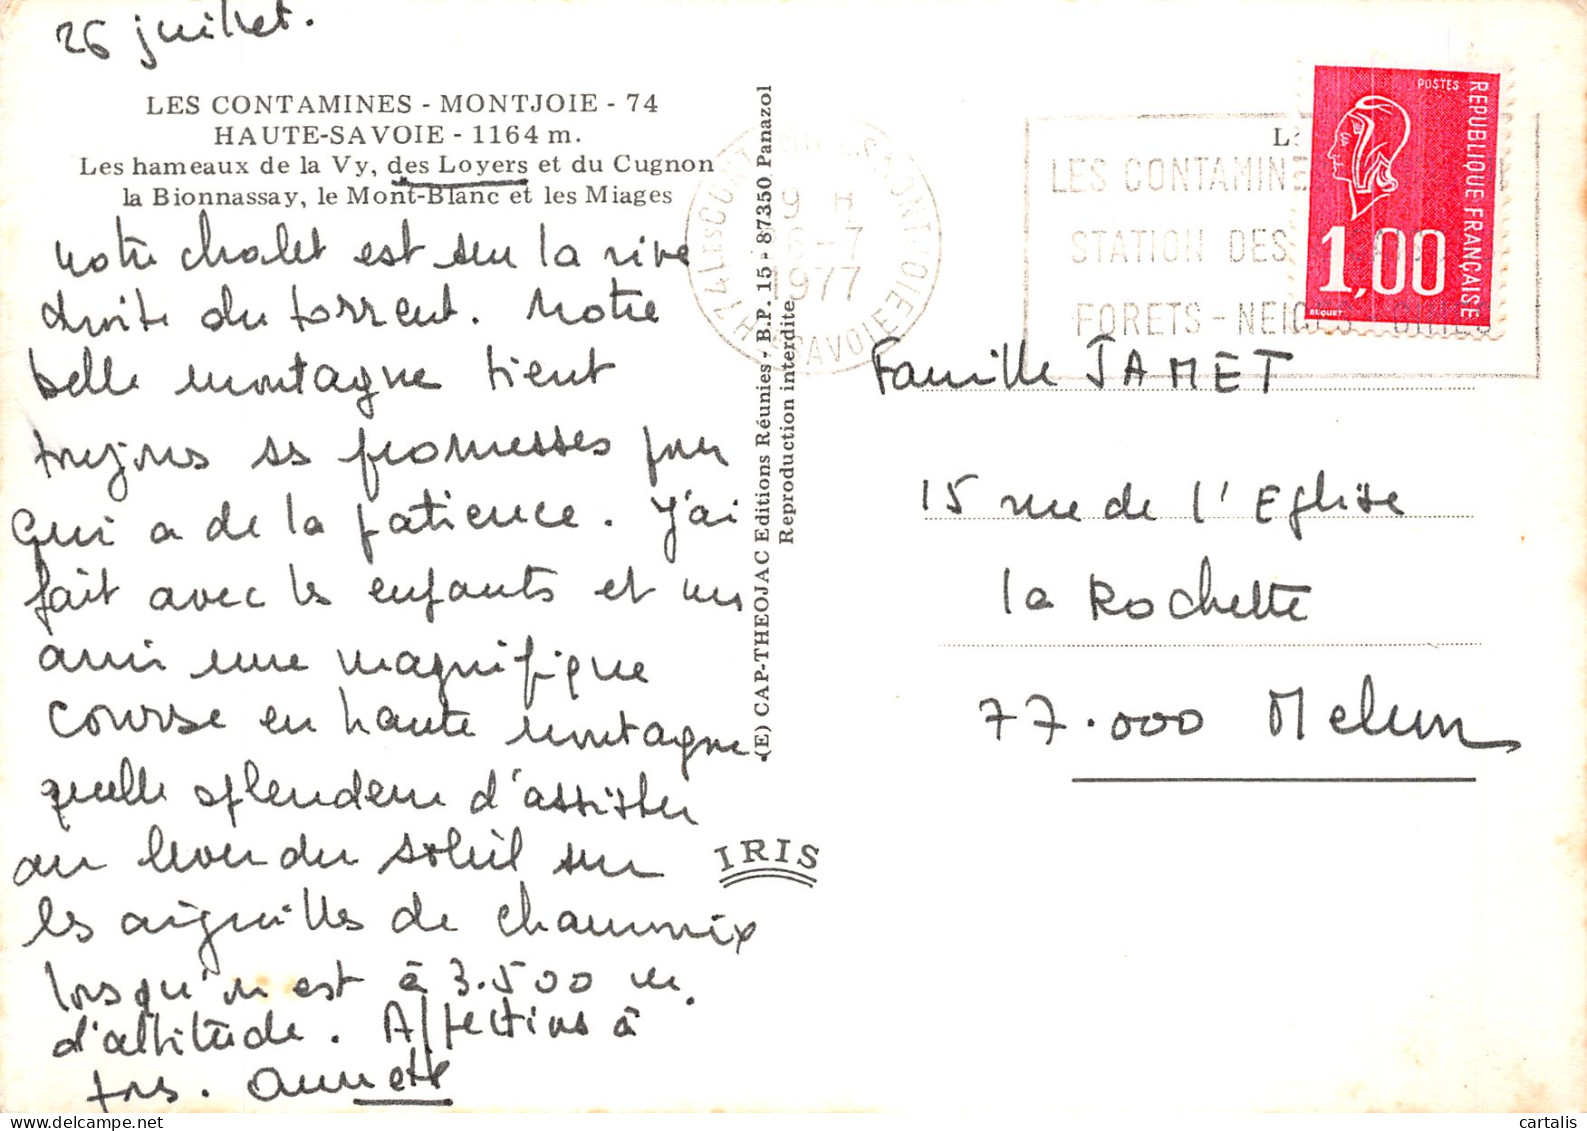 26 juillet.
LES CONTAMINES - MONTJOIE - 74
HAUTE-SAVOIE - 1164 m.
Les hameaux de la Vy, des Loyers et du Cugnon
la Bionnassay, le Mont-Blanc et les Miages
Notre chalet est sur la rive
droite du torrent. Notre
belle montagne tient
toujours ses promesses pour
qui a de la patience. J'ai
fait avec les enfants et un
ami une magnifique
course en haute montagne
quelle splendeur d'assister
au lever du soleil sur
les aiguilles de Chamonix
lorsqu'on est à 3.500 m.
d'altitude. Affections à
tous. Annette
(E) CAP-THEOJAC Editions Réunies - B.P. 15 - 87350 Panazol
Reproduction interdite
IRIS
9 H
6-7
1977
74 LES CONTAMINES MONTJOIE
HTE SAVOIE
LES CONTAMINES
STATION DES
FORETS - NEIGES
POSTES
REPUBLIQUE FRANÇAISE
1,00
BEQUET
Famille JAMET
15 rue de l'Eglise
la Rochette
77.000 Melun
cartalis